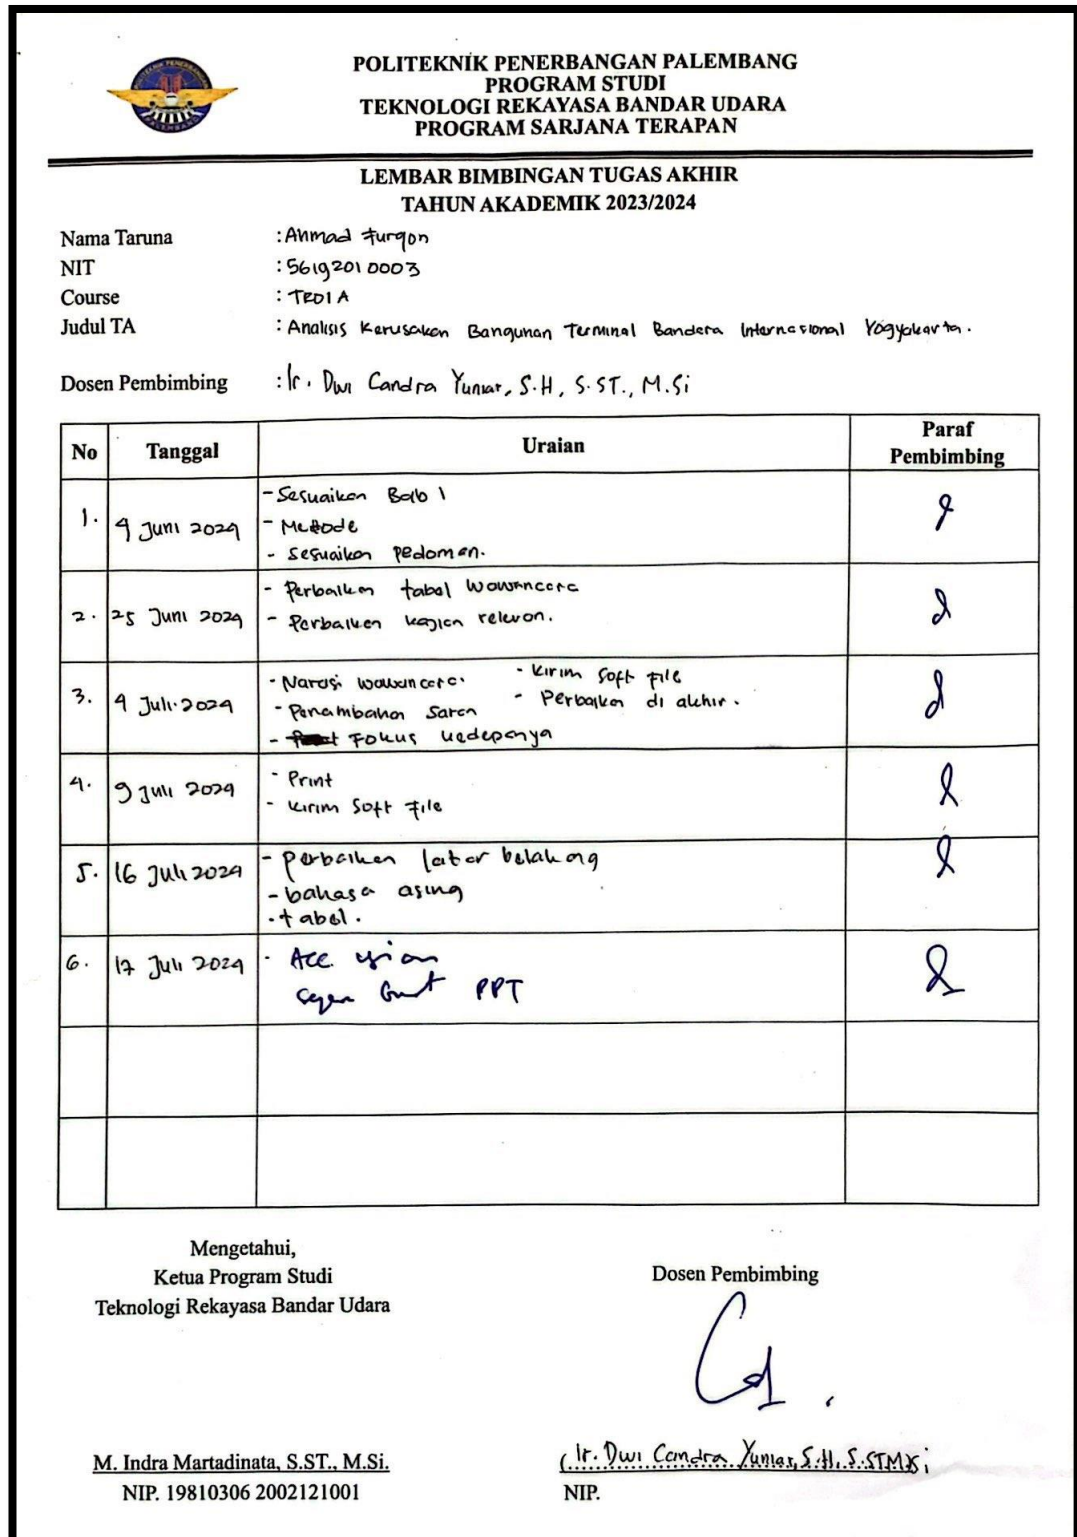 POLITEKNIK PENERBANGAN PALEMBANG
PROGRAM STUDI
TEKNOLOGI REKAYASA BANDAR UDARA
PROGRAM SARJANA TERAPAN
LEMBAR BIMBINGAN TUGAS AKHIR
TAHUN AKADEMIK 2023/2024
Nama Taruna : Ahmad Furqon
NIT : 56192010003
Course : TRBU A
Judul TA : Analisis Kerusakan Bangunan Terminal Bandara Internasional Yogyakarta.
Dosen Pembimbing : Ir. Dwi Candra Yuniar, S.H, S.ST., M.Si
No Tanggal Uraian Paraf Pembimbing
1. 4 Juni 2024 - Sesuaikan Bab 1
- Metode
- Sesuaikan pedoman.
2. 25 Juni 2024 - Perbaikan tabel wawancara
- Perbaikan kajian relevan.
3. 4 Juli 2024 - Narasi wawancara. - Kirim Soft file
- Penambahan Saran - Perbaikan di akhir.
- Fokus kedepanya
4. 9 Juli 2024 - Print
- Kirim Soft File
5. 16 Juli 2024 - perbaikan latar belakang
- bahasa asing
- tabel.
6. 17 Juli 2024 - Acc ujian
PPT
Mengetahui,
Ketua Program Studi
Teknologi Rekayasa Bandar Udara
Dosen Pembimbing
M. Indra Martadinata, S.ST., M.Si.
NIP. 19810306 2002121001
(Ir. Dwi Candra Yuniar, S.H, S.ST M.Si
NIP.